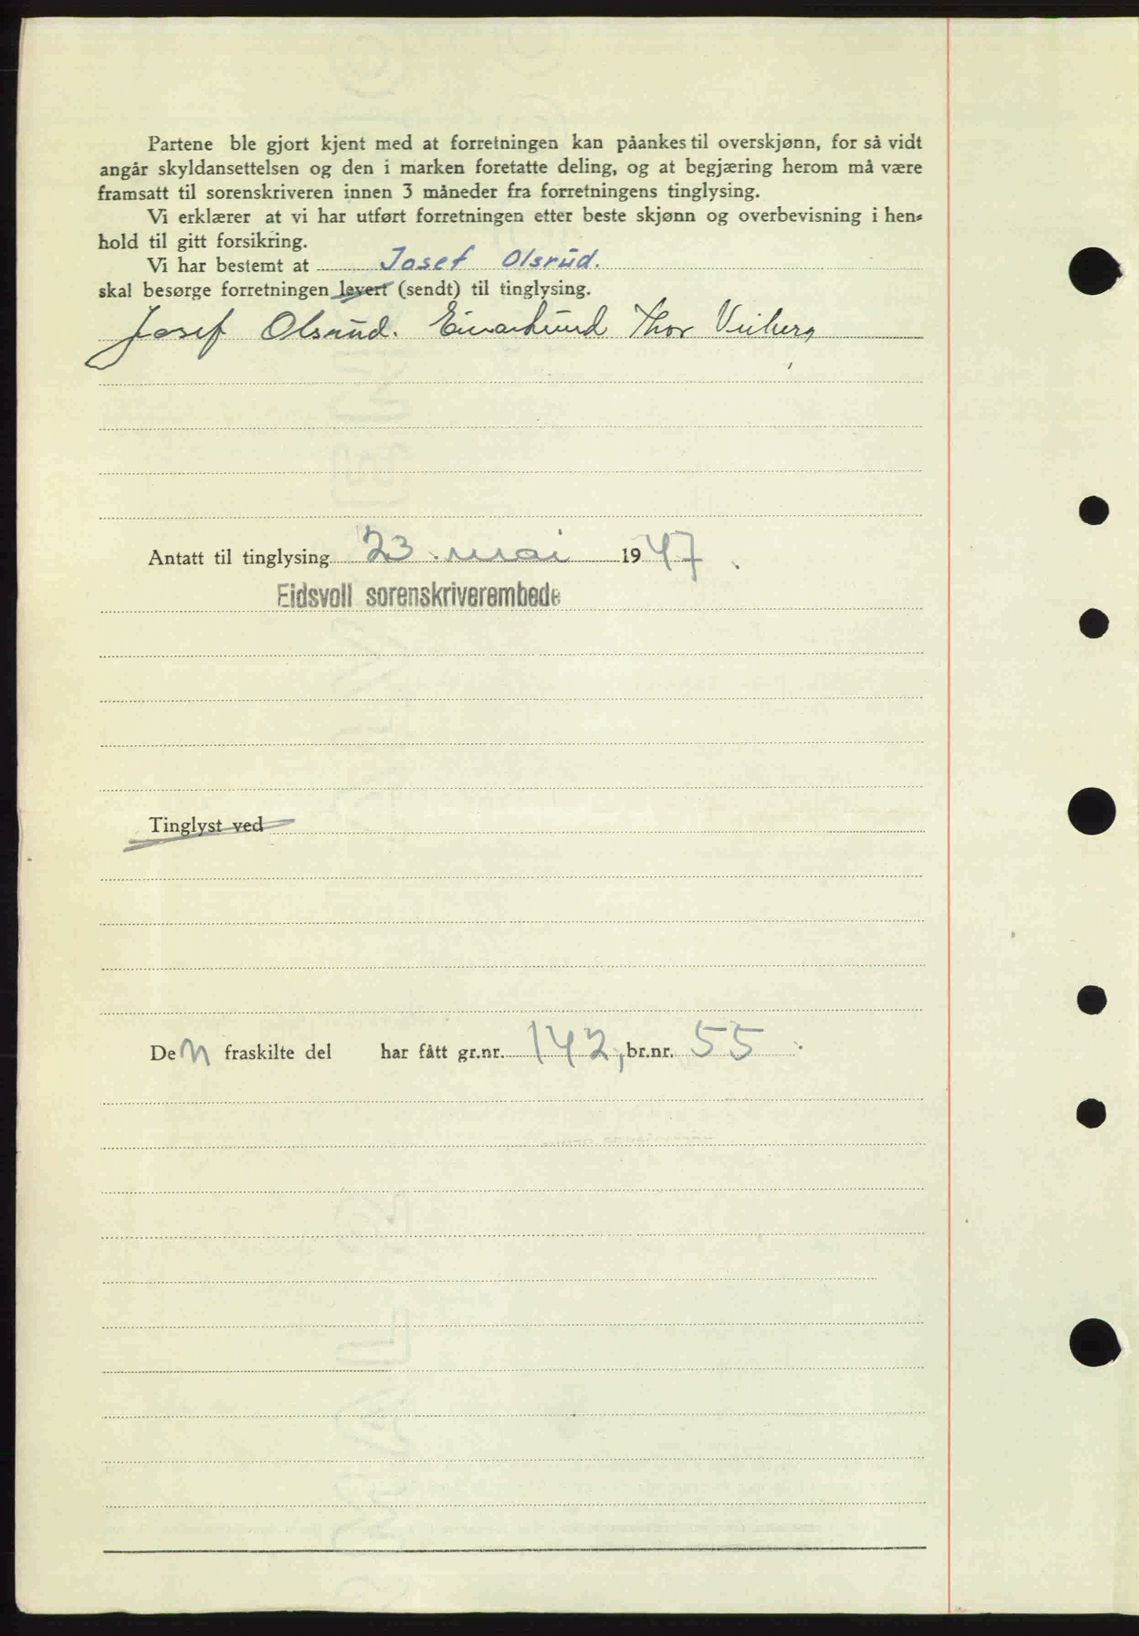 Partene ble gjort kjent med at forretningen kan påankes til overskjønn, for så vidt
angår skyldansettelsen og den i marken foretatte deling, og at begjæring herom må være
framsatt til sorenskriveren innen 3 måneder fra forretningens tinglysing.
Vi erklærer at vi har utført forretningen etter beste skjønn og overbevisning i hen-
hold til gitt forsikring.
Vi har bestemt at Josef Olsrud.
skal besørge forretningen levert (sendt) til tinglysing.
Josef Olsrud. Einar Lund Thor
Antatt til tinglysing 23. mai 1947.
Eidsvoll sorenskriverembede
Tinglyst ved
Den fraskilte del har fått gr.nr. 142, br.nr. 55.